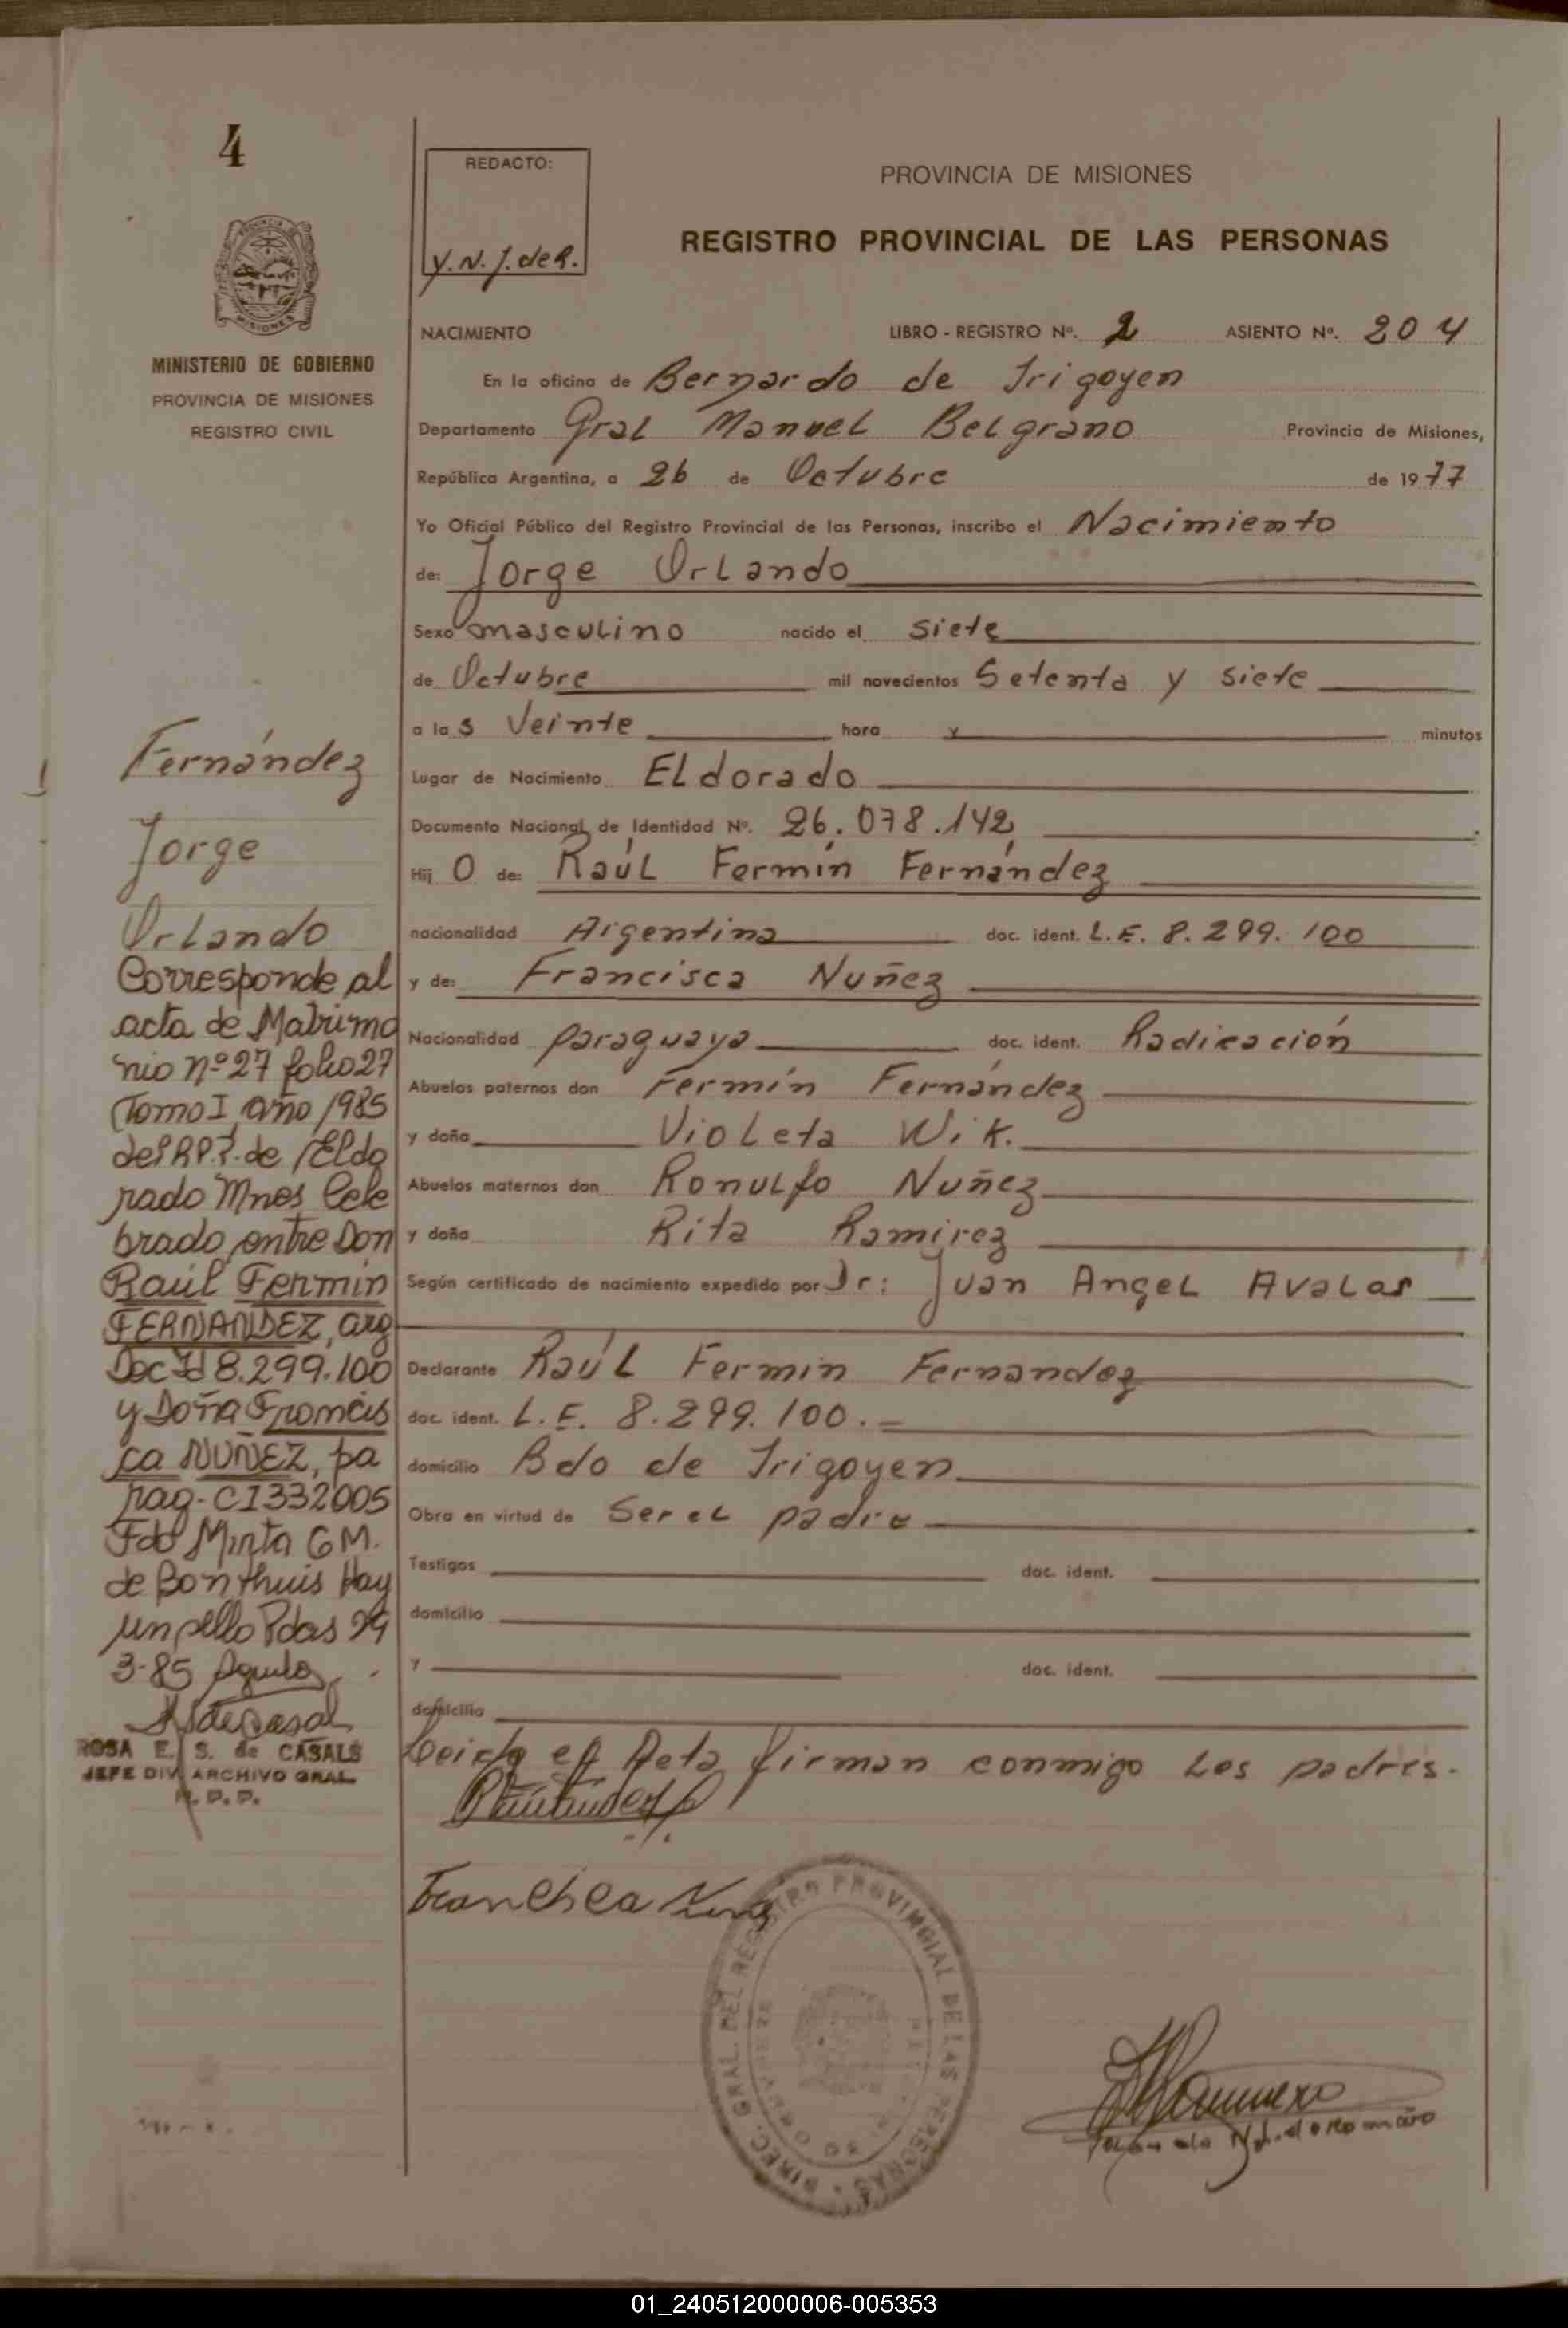 4
REDACTO:
Y. N. J. de R.
PROVINCIA DE MISIONES
REGISTRO PROVINCIAL DE LAS PERSONAS
MISIONES
MINISTERIO DE GOBIERNO
PROVINCIA DE MISIONES
REGISTRO CIVIL
NACIMIENTO LIBRO - REGISTRO Nº. 2 ASIENTO Nº. 204
En la oficina de Bernardo de Irigoyen
Departamento Gral Manuel Belgrano Provincia de Misiones,
República Argentina, a 26 de Octubre de 1977
Yo Oficial Público del Registro Provincial de las Personas, inscribo el Nacimiento
de: Jorge Orlando
Sexo masculino nacido el siete
de Octubre mil novecientos Setenta y siete
a las Veinte hora y minutos
Lugar de Nacimiento Eldorado
Documento Nacional de Identidad Nº. 26.078.142
Hij o de: Raúl Fermín Fernández
nacionalidad Argentina doc. ident. L.E. 8.299.100
y de: Francisca Nuñez
Nacionalidad paraguaya doc. ident. Radicación
Abuelos paternos don Fermín Fernández
y doña Violeta Wik.
Abuelos maternos don Ronulfo Nuñez
y doña Rita Ramirez
Según certificado de nacimiento expedido por Dr: Juan Angel Avalos
Declarante Raúl Fermin Fernandez
doc. ident. L.E. 8.299.100.=
domicilio Bdo de Irigoyen
Obra en virtud de Ser el padre
Testigos doc. ident.
domicilio
y doc. ident.
domicilio
Leida el Acta firman conmigo los padres.
Fernández
Jorge
Orlando
Corresponde al
acta de Matrimo
nio nº 27 folio 27
Tomo I año 1985
del R.P.P. de Eldo
rado Mnes Cele
brado entre Don
Raúl Fermin
FERNANDEZ, arg
Doc Id 8.299.100
y Doña Francis
ca NUÑEZ, pa
rag- CI 332005
Fdo Mirta G M.
de Bonthuis Hay
un sello Pdas 29
3-85
ROSA E. S. de CASALS
JEFE DIV. ARCHIVO GRAL.
R. P. P.
DIREC. GRAL. DEL REGISTRO PROVINCIAL DE LAS PERSONAS
01_240512000006-005353